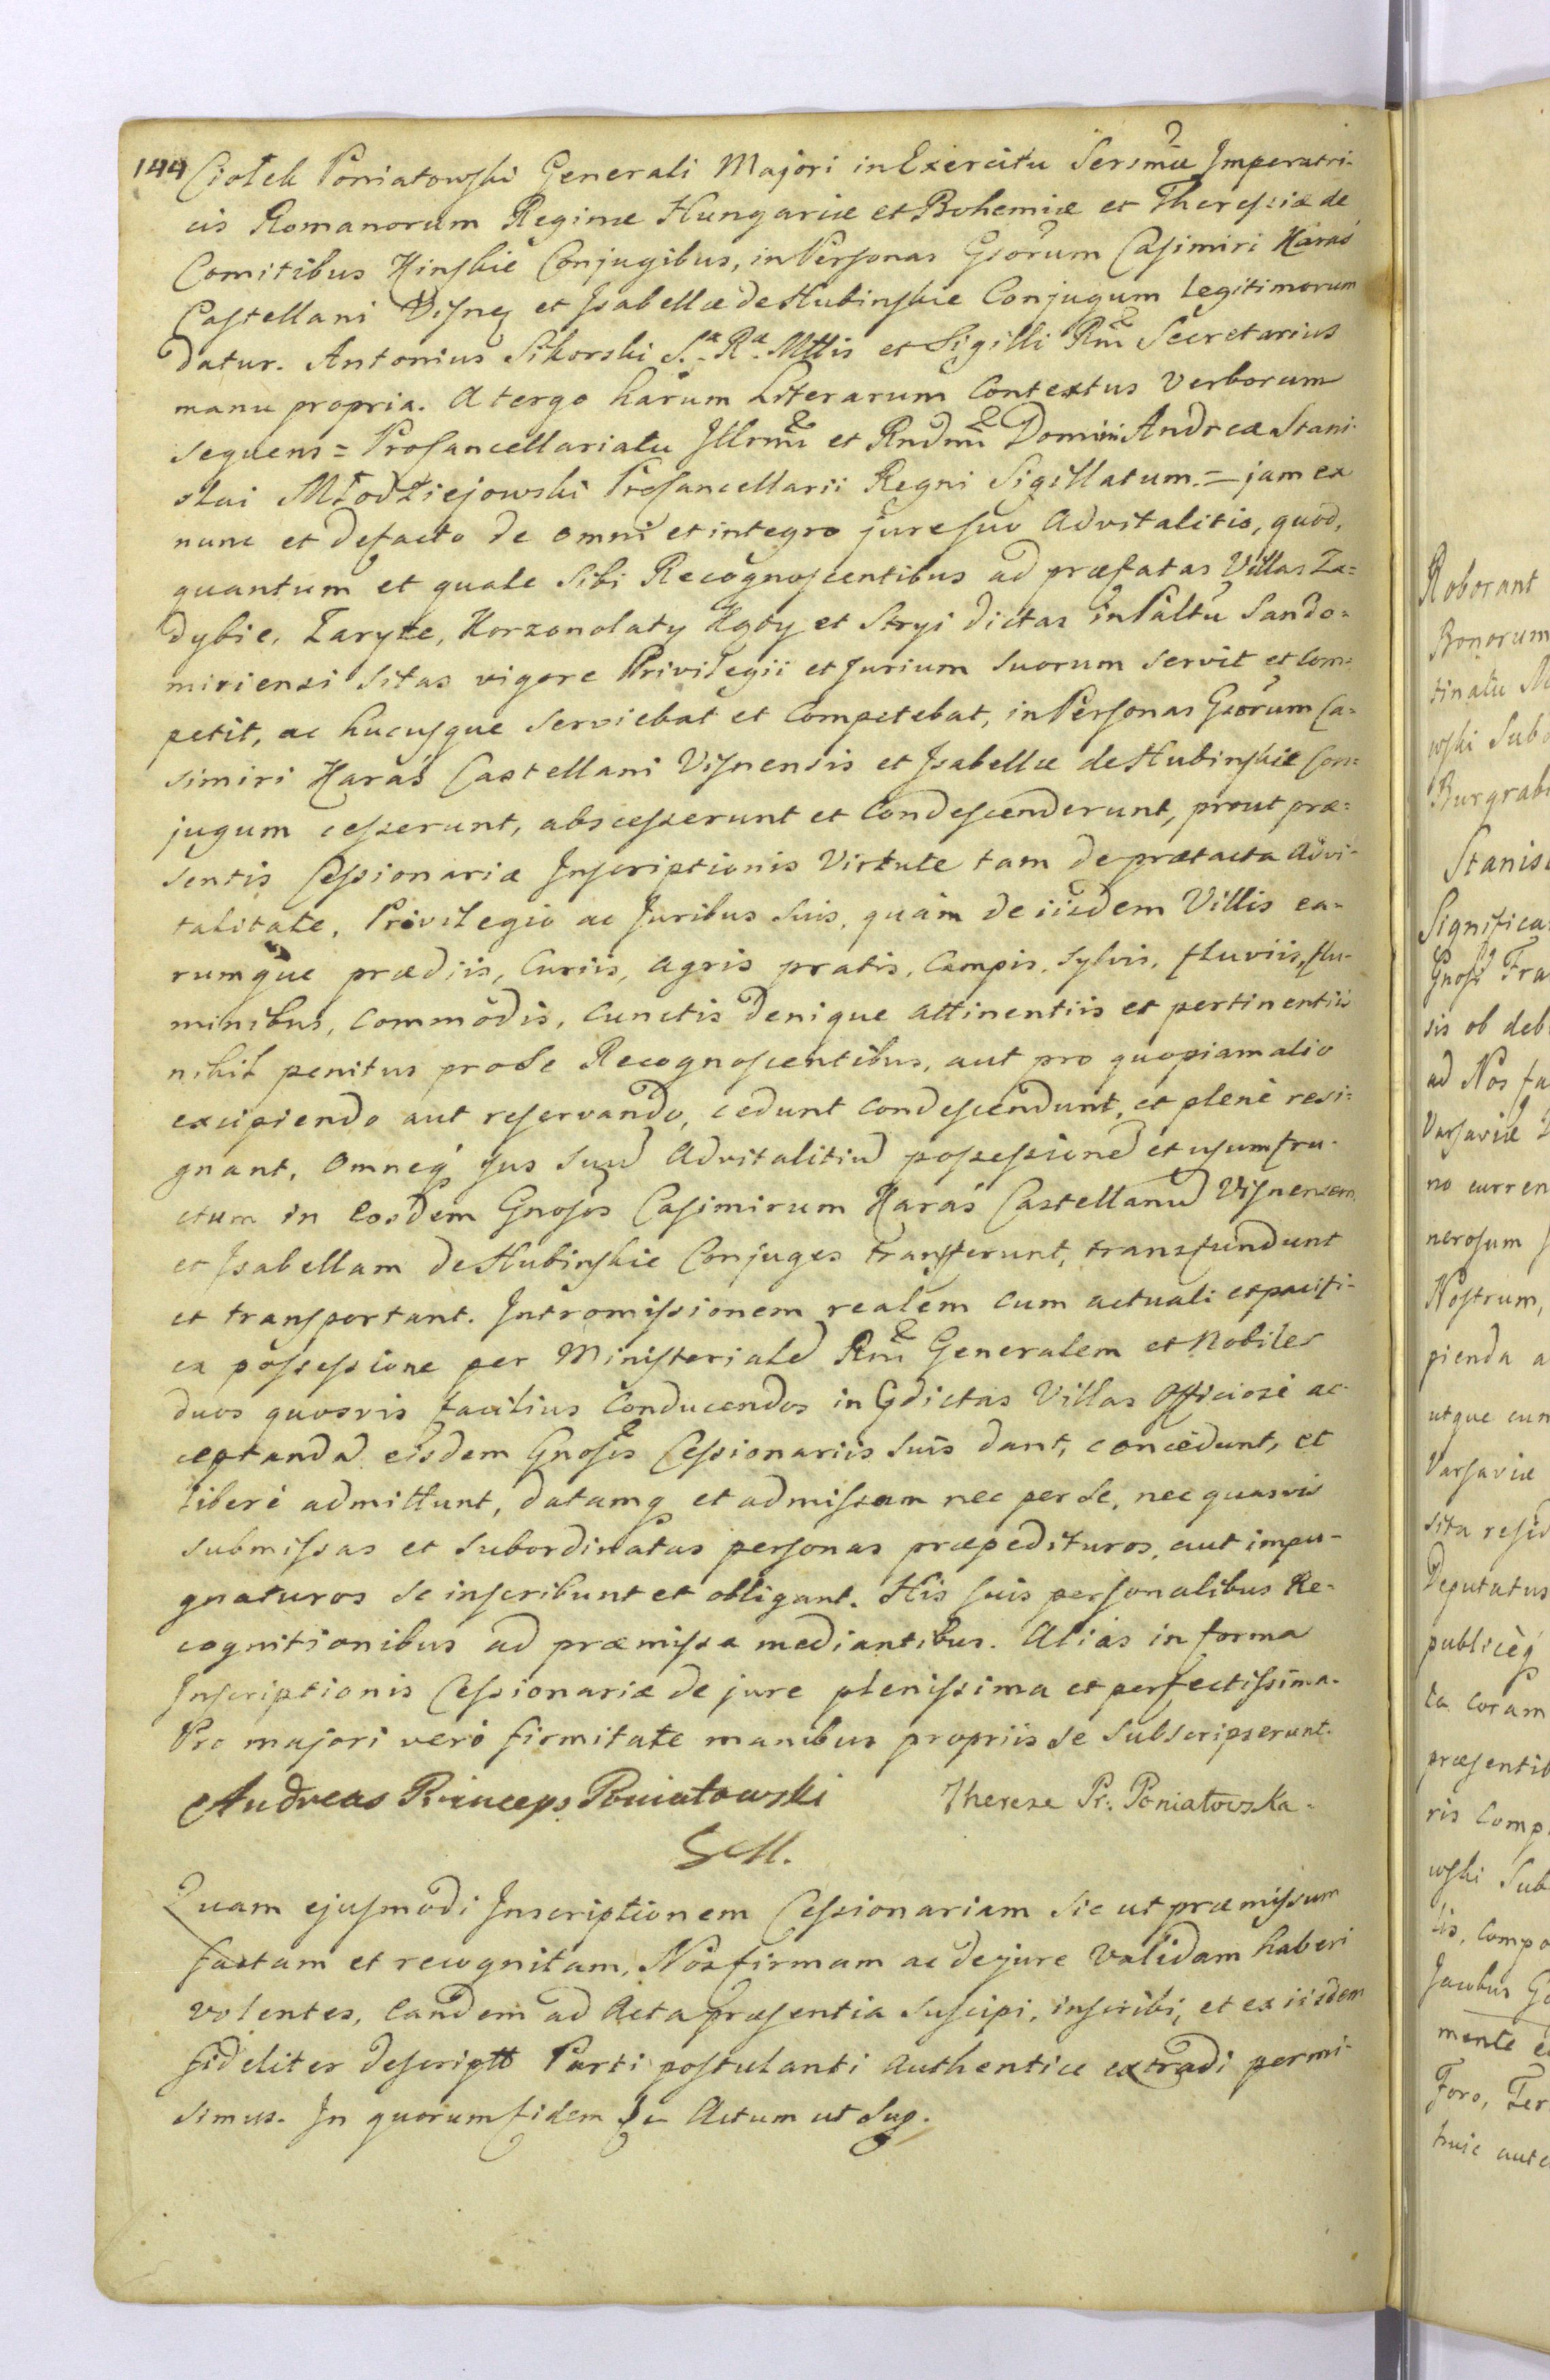 144 Ciołek Poniatowski Generali Majori in Exercitu Sersmæ Imperatri-
cis Romanorum Reginæ Hungariæ et Bohemiæ et Theresiæ de
Comitibus Kinskie Conjugibus, in Personas Gsorum Casimiri Karaś
Castellani Visneñ et Isabellæ de Hubinskie Conjugum Legitimorum
datur. Antonius Sikorski S.æ R.æ Mttis et Sigilli Rñi Secretarius
manu propria. A tergo harum Literarum Contextus Verborum
sequens = Procancellariatu Illrmi et Rndmi Domini Andreæ Stani-
slai Młodziejowski Procancellarii Regni Sigillatum. = jam ex
nunc et defacto de omni et integro jure suo Advitalitio, quod,
quantum et quale Sibi Recognoscentibus ad præfatas Villas Za=
dybie, Zaryte, Korzonolaty Kąty et Stryi dictas in Paltu Sando=
miriensi Sitas vigore Privilegii et Jurium Suorum Servit et Com-
petit, ac hucusque Serviebat et Competebat, in Personas Gsorum Ca=
simiri Karaś Castellani Visnensis et Isabellæ de Hubinskie Con=
jugum cesserunt, abscesserunt et Condescenderunt, prout præ=
sentis Cessionariæ Inscriptionis Virtute tam de prætacta Advi-
talitate, Privilegio ac Juribus Suis, quàm de iisdem Villis ea-
rumque prædiis, Curiis, Agris pratis, Campis, Sylvis, fluviis, flu-
minibus, Commodis, Cunctis denique attinentiis et pertinentiis
nihil penitus pro Se Recognoscentibus, aut pro quopiam alio
excipiendo aut reservando, cedunt Condescendunt, et plenè resi=
gnant, Omneq; Jus Suum Advitalitium possessionem et usumfru-
ctum in Eosdem Gnosos Casimirum Karaś Castellanum Visnensem
et Isabellam de Hubinskie Conjuges transferunt, transfundunt
et transportant. Intromissionem realem cum actuali et pacifi-
ca possessione per Ministerialem Rñi Generalem et Nobiles
duos quosvis facilius Conducendos in Gdictas Villas Officiosè ac-
ceptandam eisdem Gnosis Cessionariis Suis dant, concedunt, et
liberè admittunt, datamq; et admissam nec per Se, nec quasvis
Submissas et Subordinatas personas præpedituros, aut impu-
gnaturos se inscribunt et obligant. His Suis personalibus Re-
cognitionibus ad præmissa mediantibus. Alias in forma
Inscriptionis Cessionariæ de jure plenissima et perfectissima.
Pro majori verò firmitate manibus propriis se Subscripserunt.
Andreas Princeps Poniatowski Therese Pr: Poniatowska.
GM.
Quam ejusmodi Inscriptionem Cessionariam Sic ut præmissum
factam et recognitam, Nos firmam ac de jure Validam haberi
volentes, Eandem ad Acta præsentia Suscipi, inscribi, et ex iisdem
fideliter descriptt Parti postulanti Authentice extradi permi-
simus. In quorum fidem &c Actum ut Sup.
Roborant
Bonorum
tinatu
wski Sub
Burgrab
Stanis
Significa
Gnosi Fra
sis ob deb
ad Nos fa
Varsaviæ
no curren
nerosum
Nostrum,
pienda a
utque cum
Varsaviæ
sita resid
Deputatus
publicèq;
ta Coram
præsentib
ris Comp
wski Sub
tis, Compo
Jacobus G
mente e
Foro, Ter
huic aute